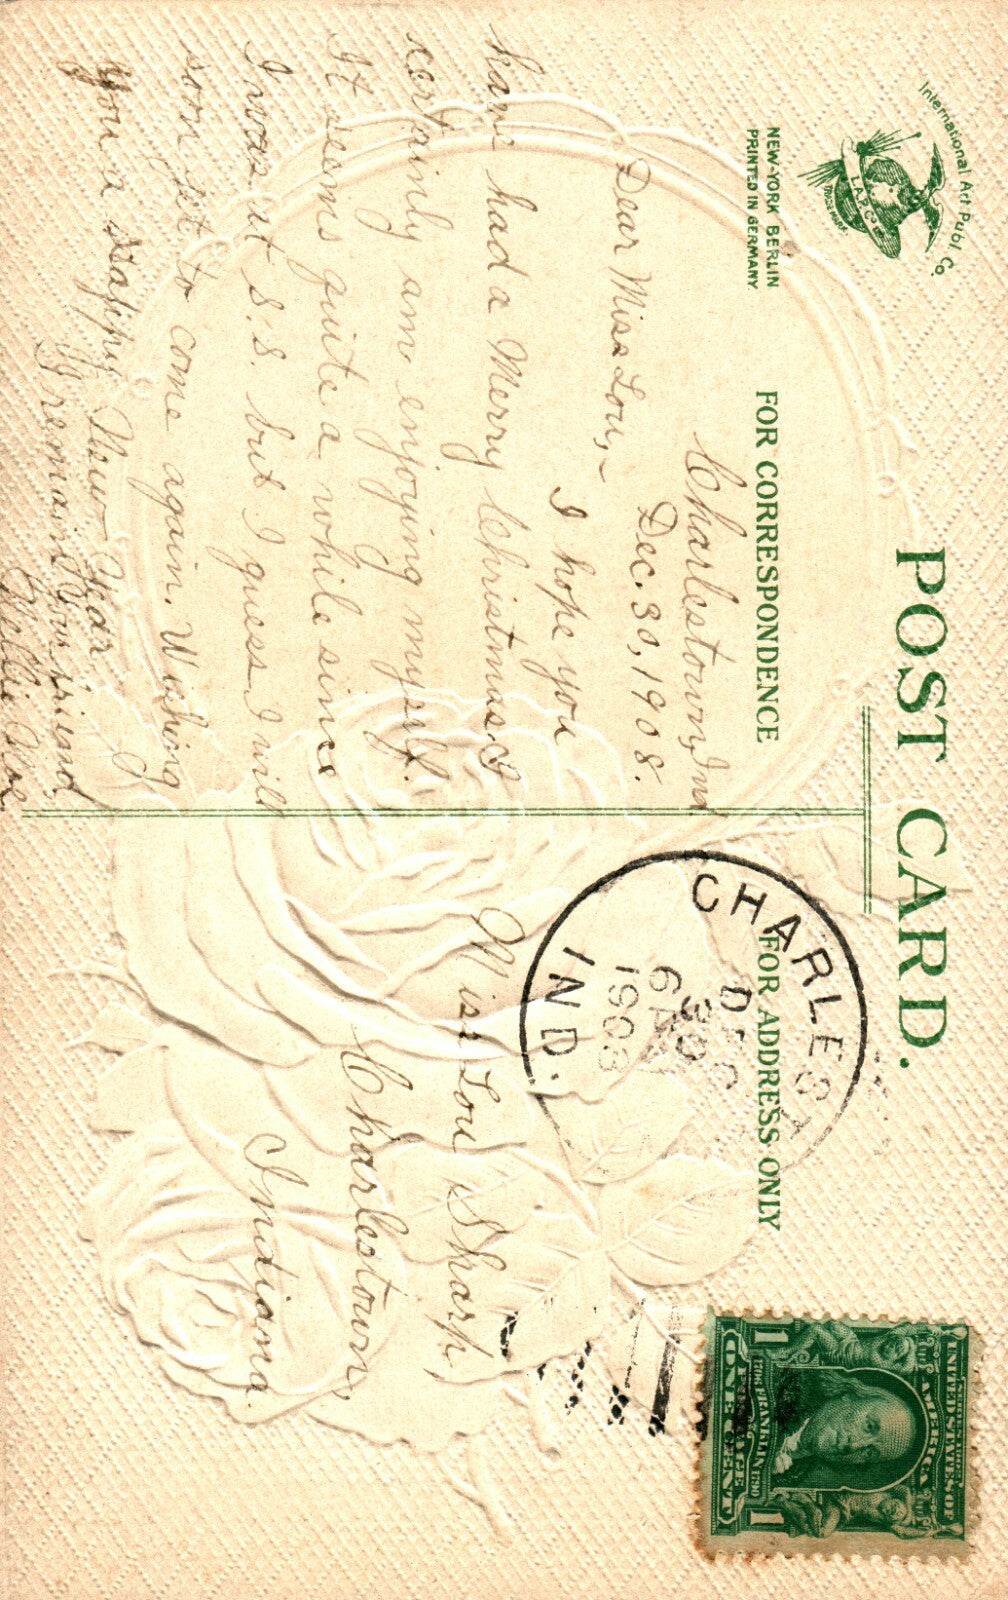 POST CARD.
International Art Publ. Co.
I.A.P.Co.
TRADE MARK
NEW-YORK BERLIN
PRINTED IN GERMANY.
FOR CORRESPONDENCE
FOR ADDRESS ONLY
Charlestown, Ind
Dec. 30, 1908.
Dear Miss Lou,-
I hope you
have had a Merry Christmas. I
certainly am enjoying myself.
It seems quite a while since
I was at S.S. but I guess I will
soon get to come again. Wishing
you a Happy New Year
I remain your friend,
Nellie
CHARLEST
DEC
30
6 AM
1908
IND.
Miss Lou Sharp,
Charlestown,
Indiana.
UNITED STATES OF
AMERICA
FRANKLIN
ONE CENT
1 1